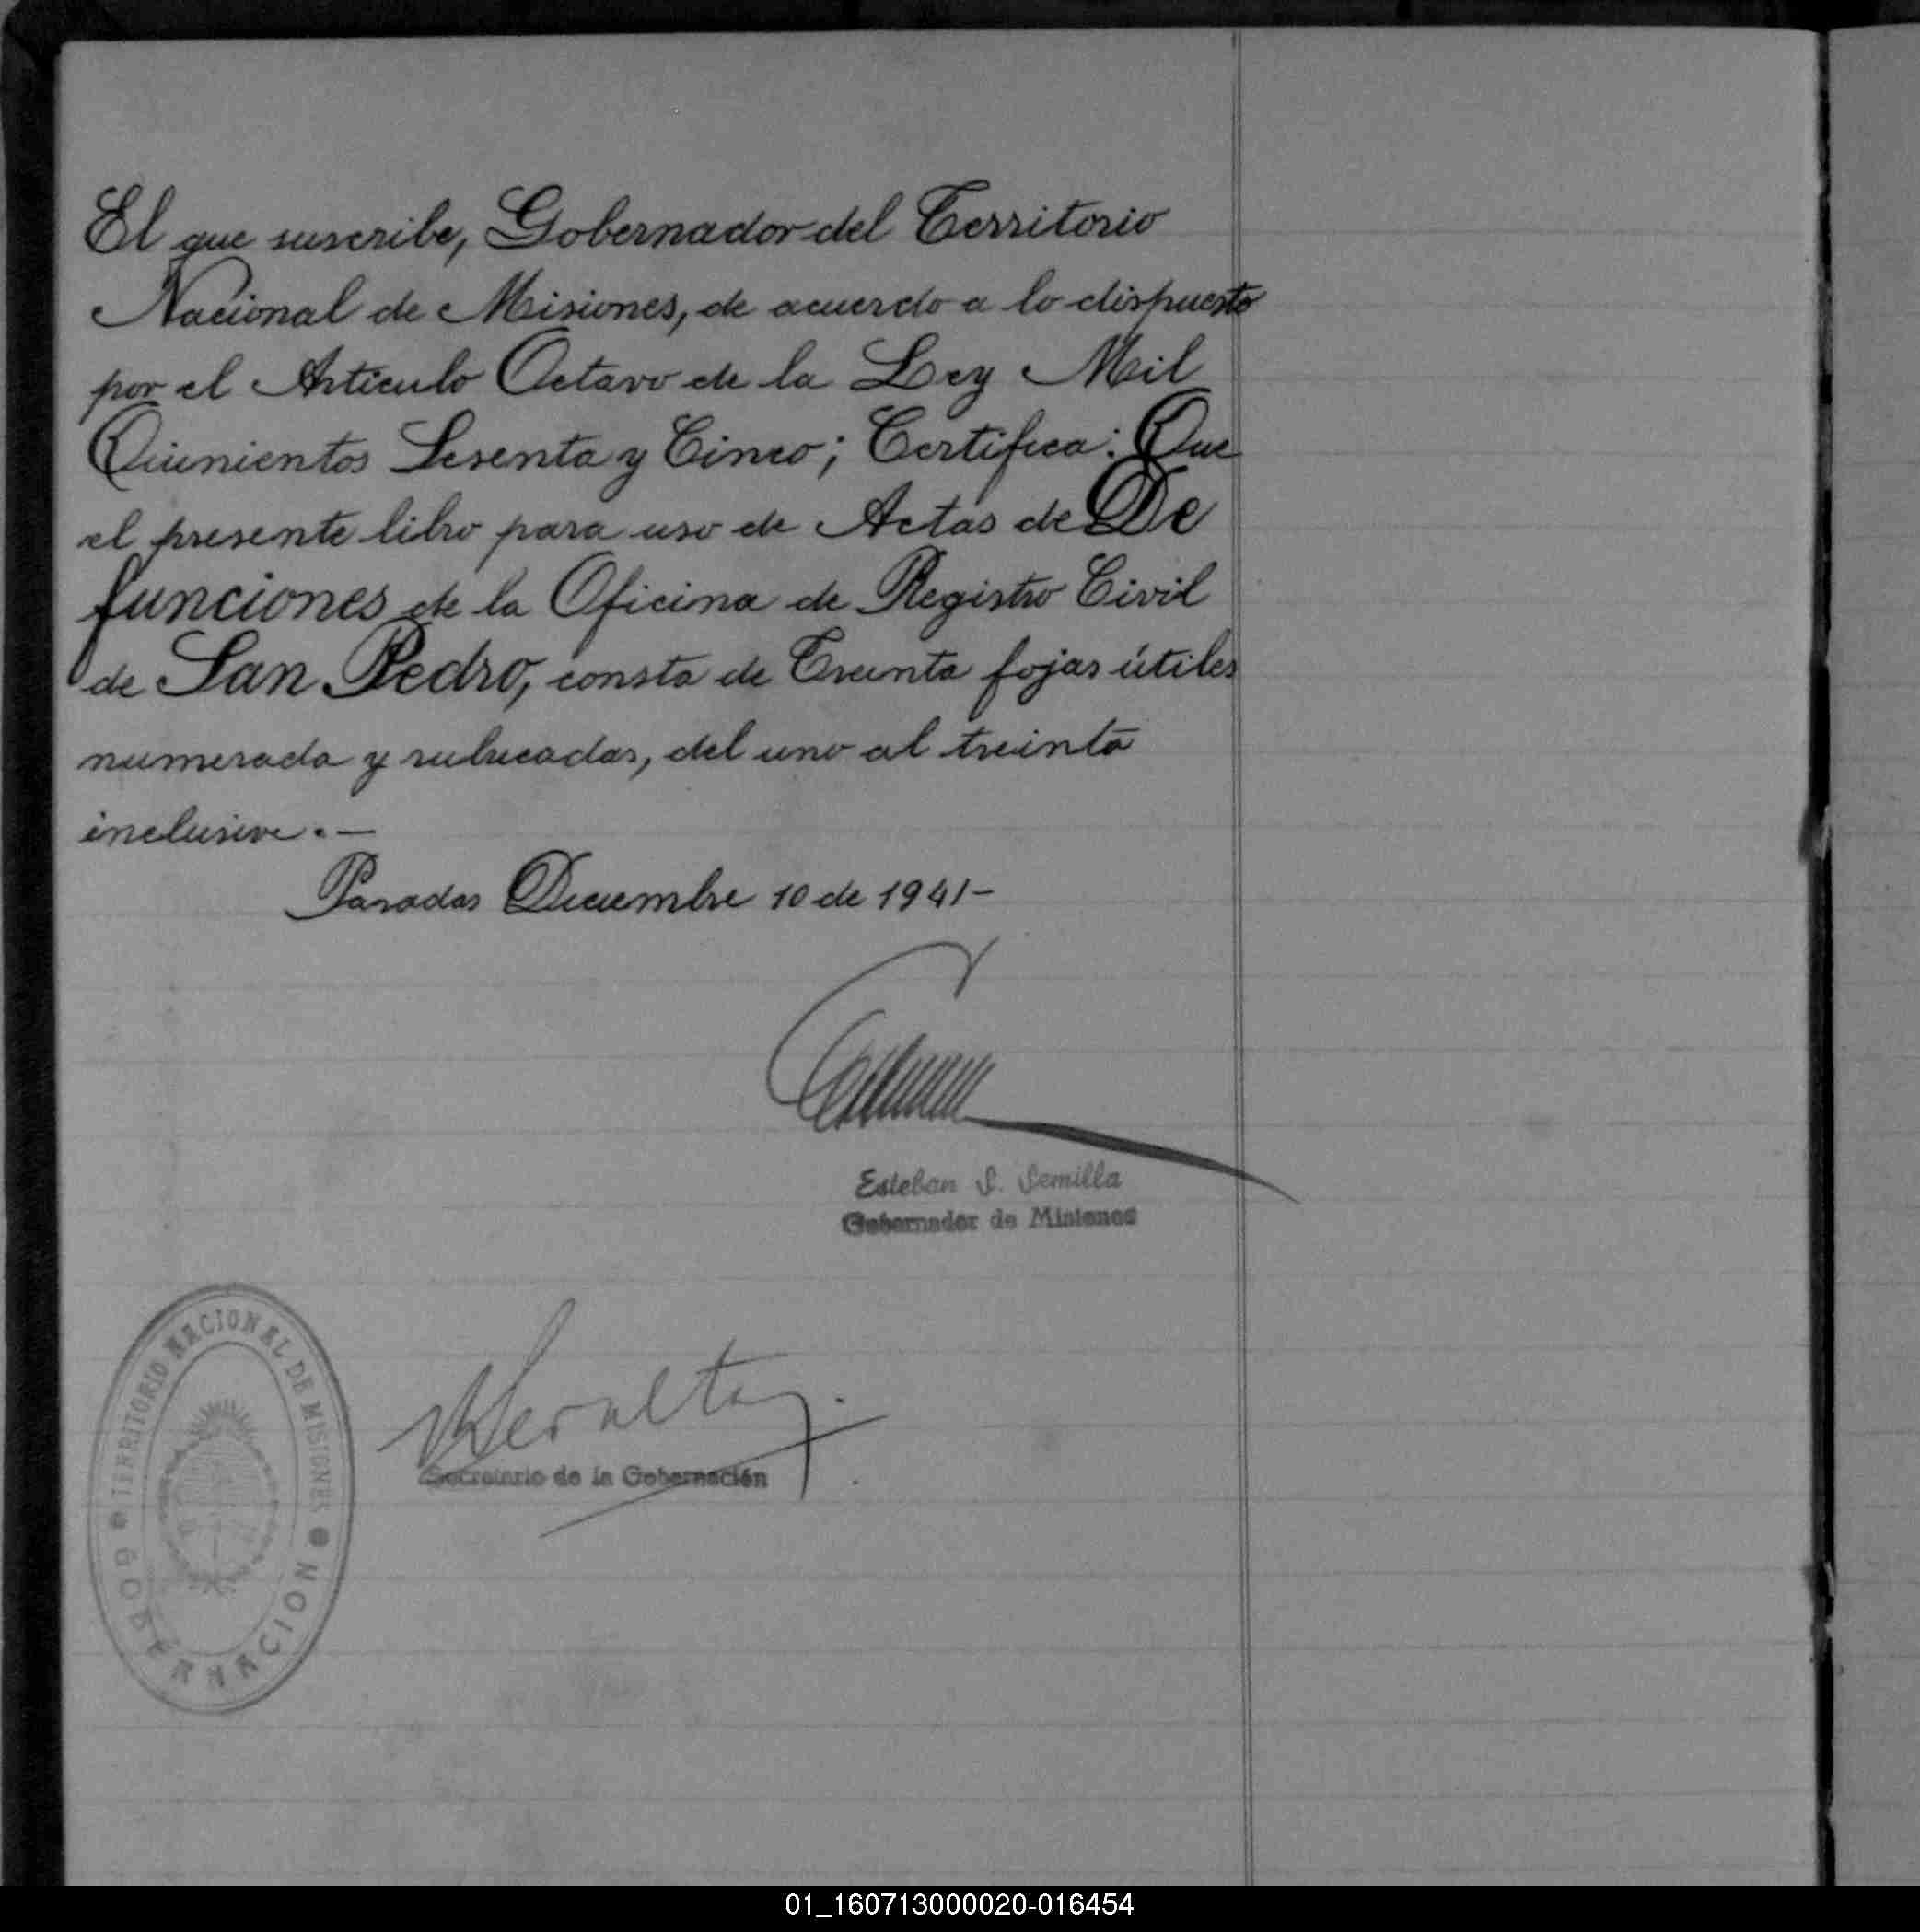 El que suscribe, Gobernador del Territorio
Nacional de Misiones, de acuerdo a lo dispuesto
por el Artículo Octavo de la Ley Mil
Quinientos Sesenta y Cinco; Certifica: Que
el presente libro para uso de Actas de De
funciones de la Oficina de Registro Civil
de San Pedro, consta de Treinta fojas útiles
numerada y rubricadas, del uno al treinta
inclusive.—
Posadas Diciembre 10 de 1941-
Esteban S. Semilla
Gobernador de Misiones
TERRITORIO NACIONAL DE MISIONES
GOBERNACION
Peralta
Secretario de la Gobernación
01_160713000020-016454